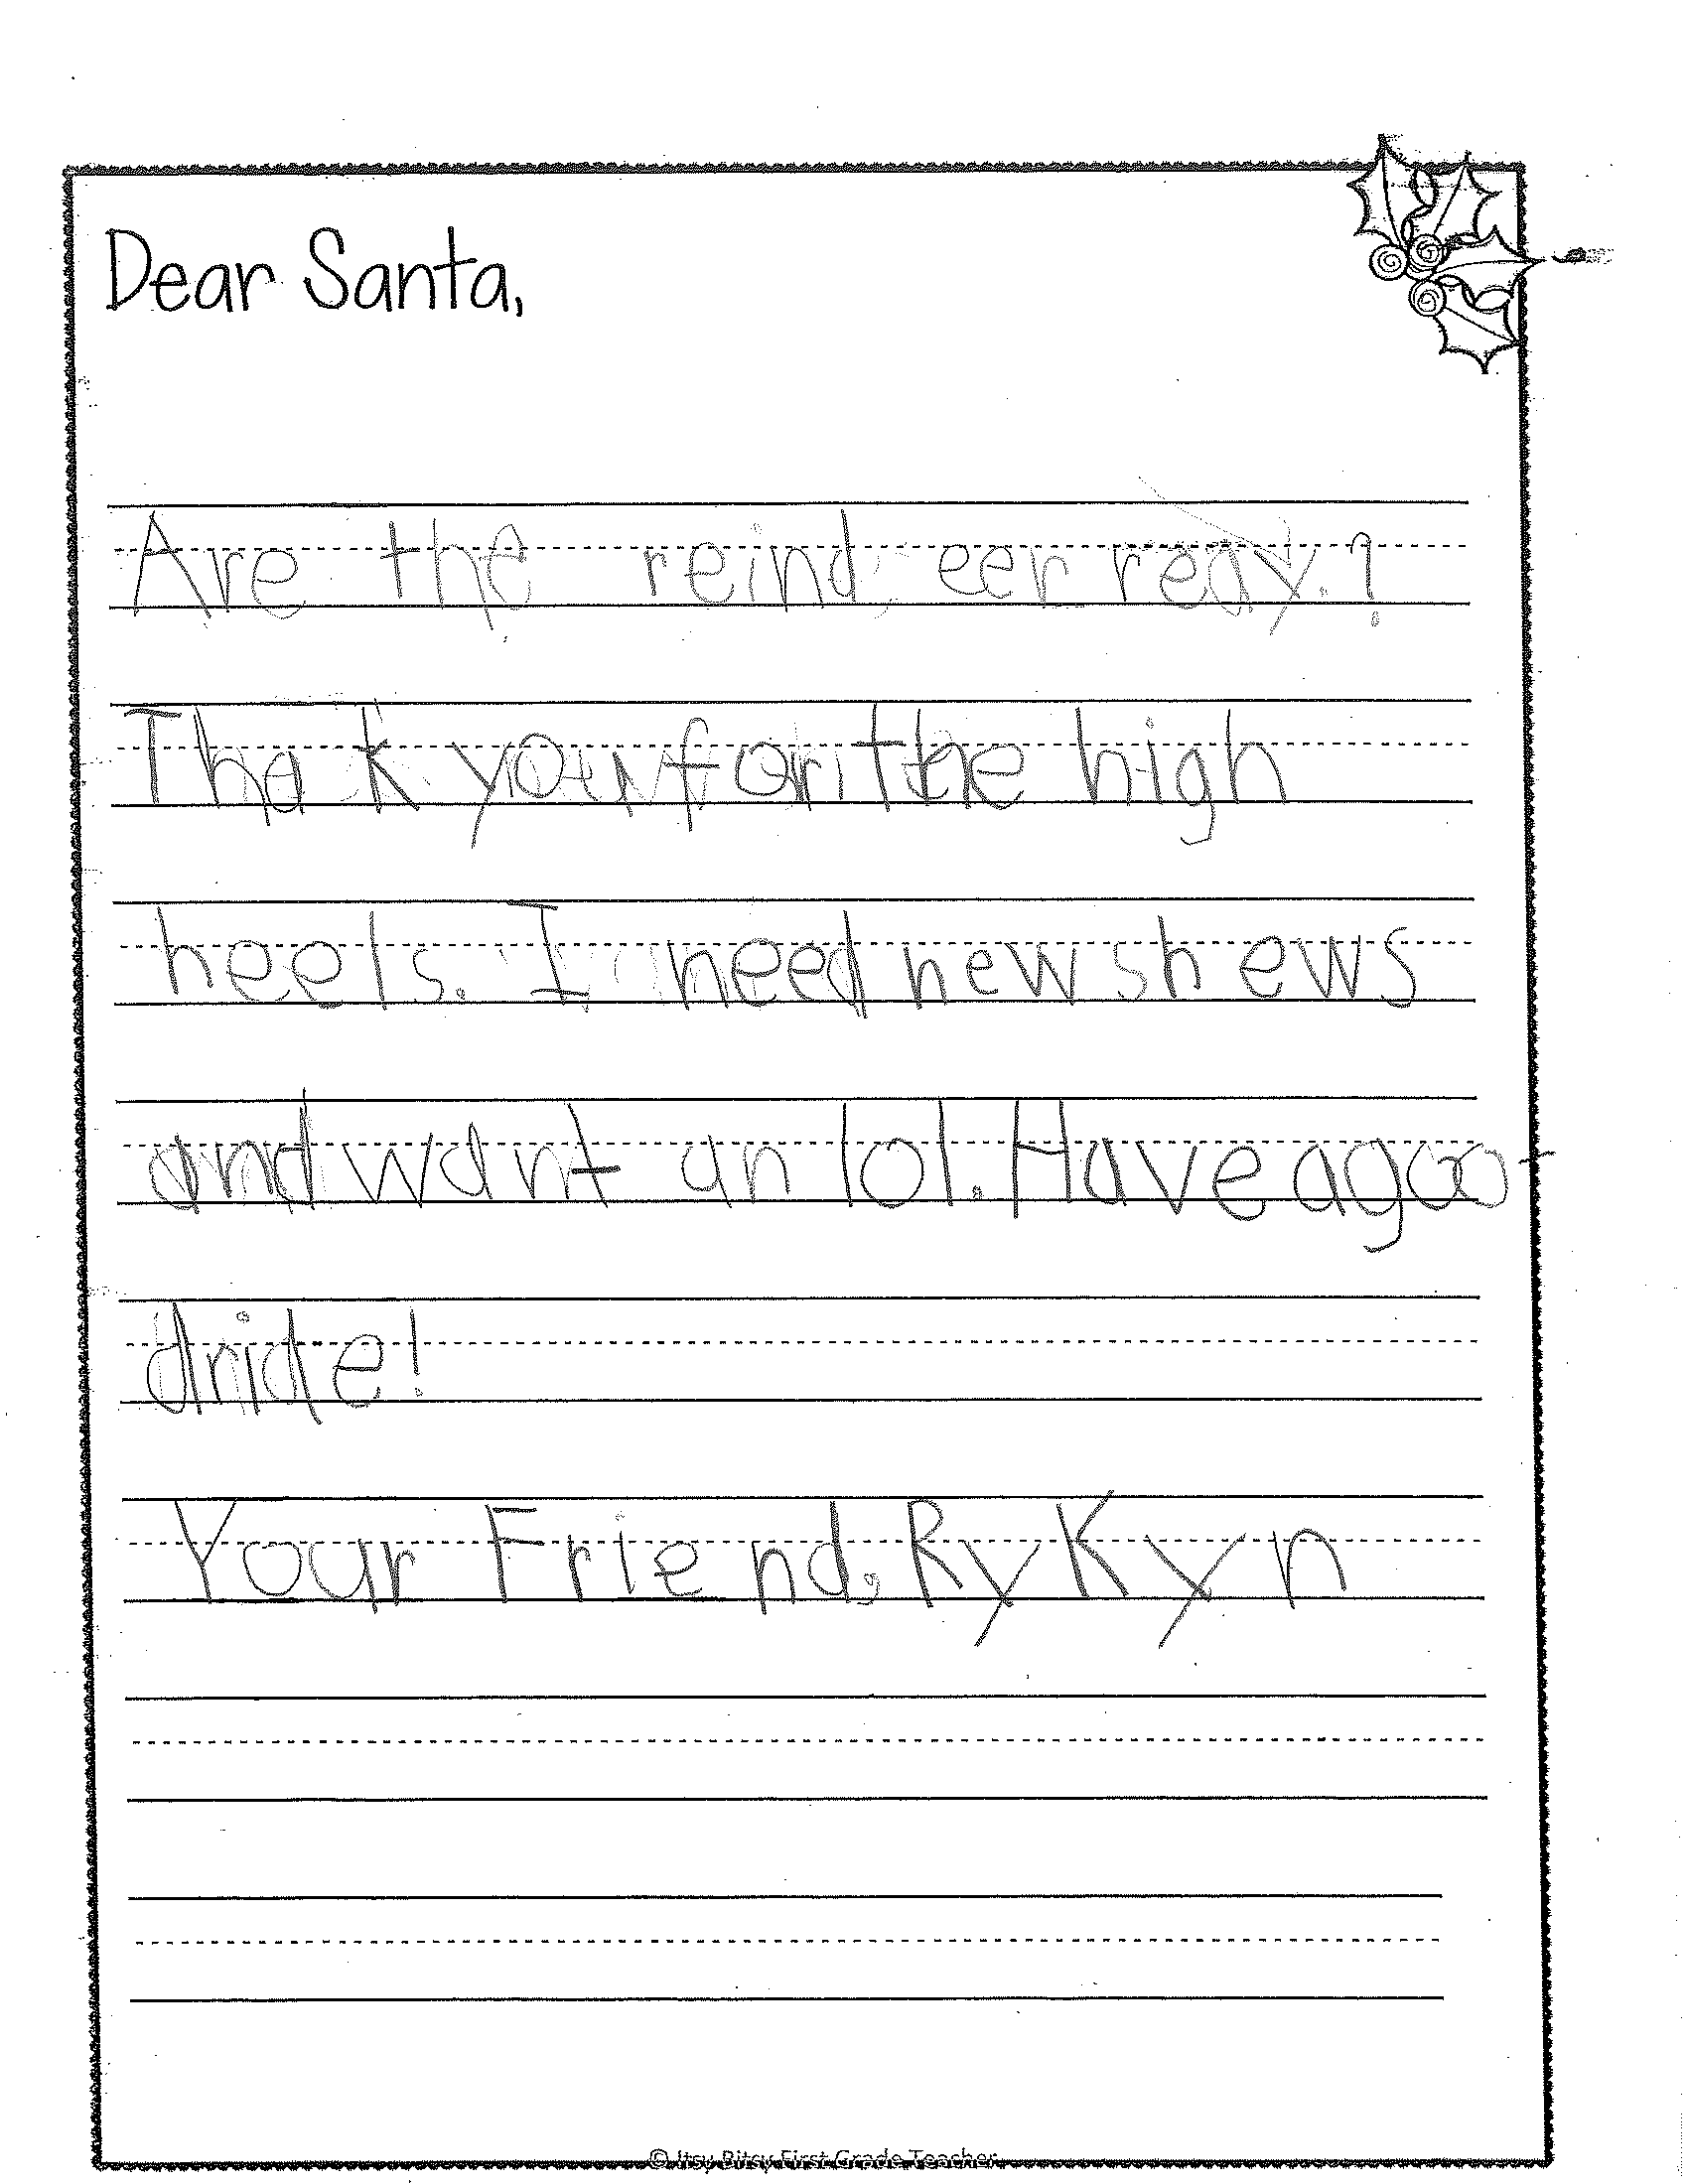 Dear Santa,
Are the reindeer reay.?
Thak you for the high
heels. I need new shews
and want an lol. Have a goo
dride!
Your Friend, RyKyn
© Itsy Bitsy First Grade Teacher